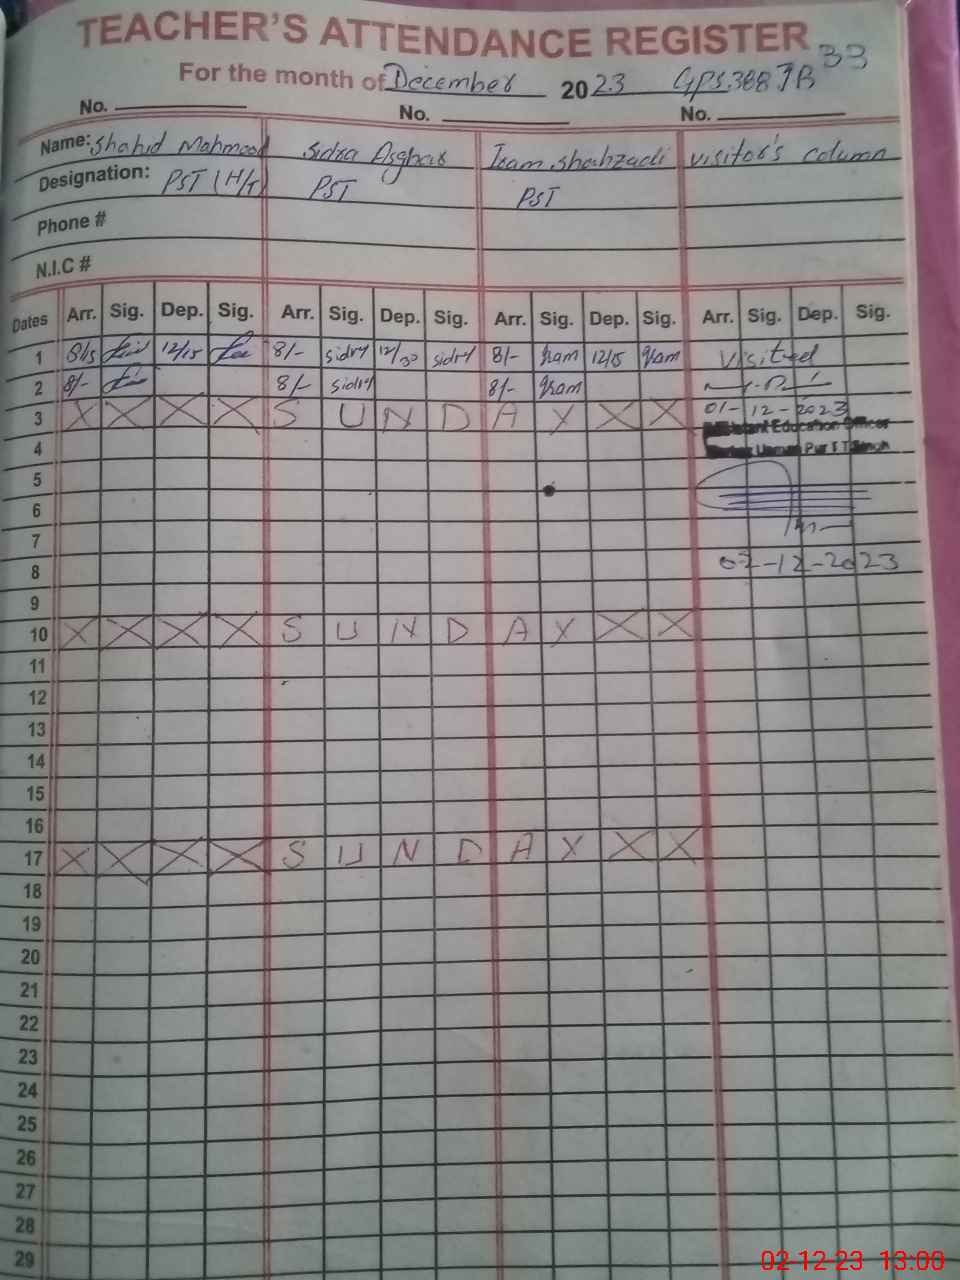 TEACHER'S ATTENDANCE REGISTER
33
For the month of December 2023 GPS.388 JB
No. No. No.
Name: Shahid Mahmood Sidra Asghar Iram Shahzadi visitor's column
Designation: PST (H/T) PST PST
Phone #
N.I.C #
Dates Arr. Sig. Dep. Sig. Arr. Sig. Dep. Sig. Arr. Sig. Dep. Sig. Arr. Sig. Dep. Sig.
1 8/5 12/15 8/- sidry 12/30 sidry 8/- Iram 12/15 Iram Visited
2 8/- 8/- sidry 8/- Iram
3 X X X X S U N D A Y X X 01-12-2023
Education Officer
4 Pur
5
6
7
8 02-12-2023
9
10 X X X X S U N D A Y X X
11
12
13
14
15
16
17 X X X X S U N D A Y X X
18
19
20
21
22
23
24
25
26
27
28
29
02-12-23 13:00